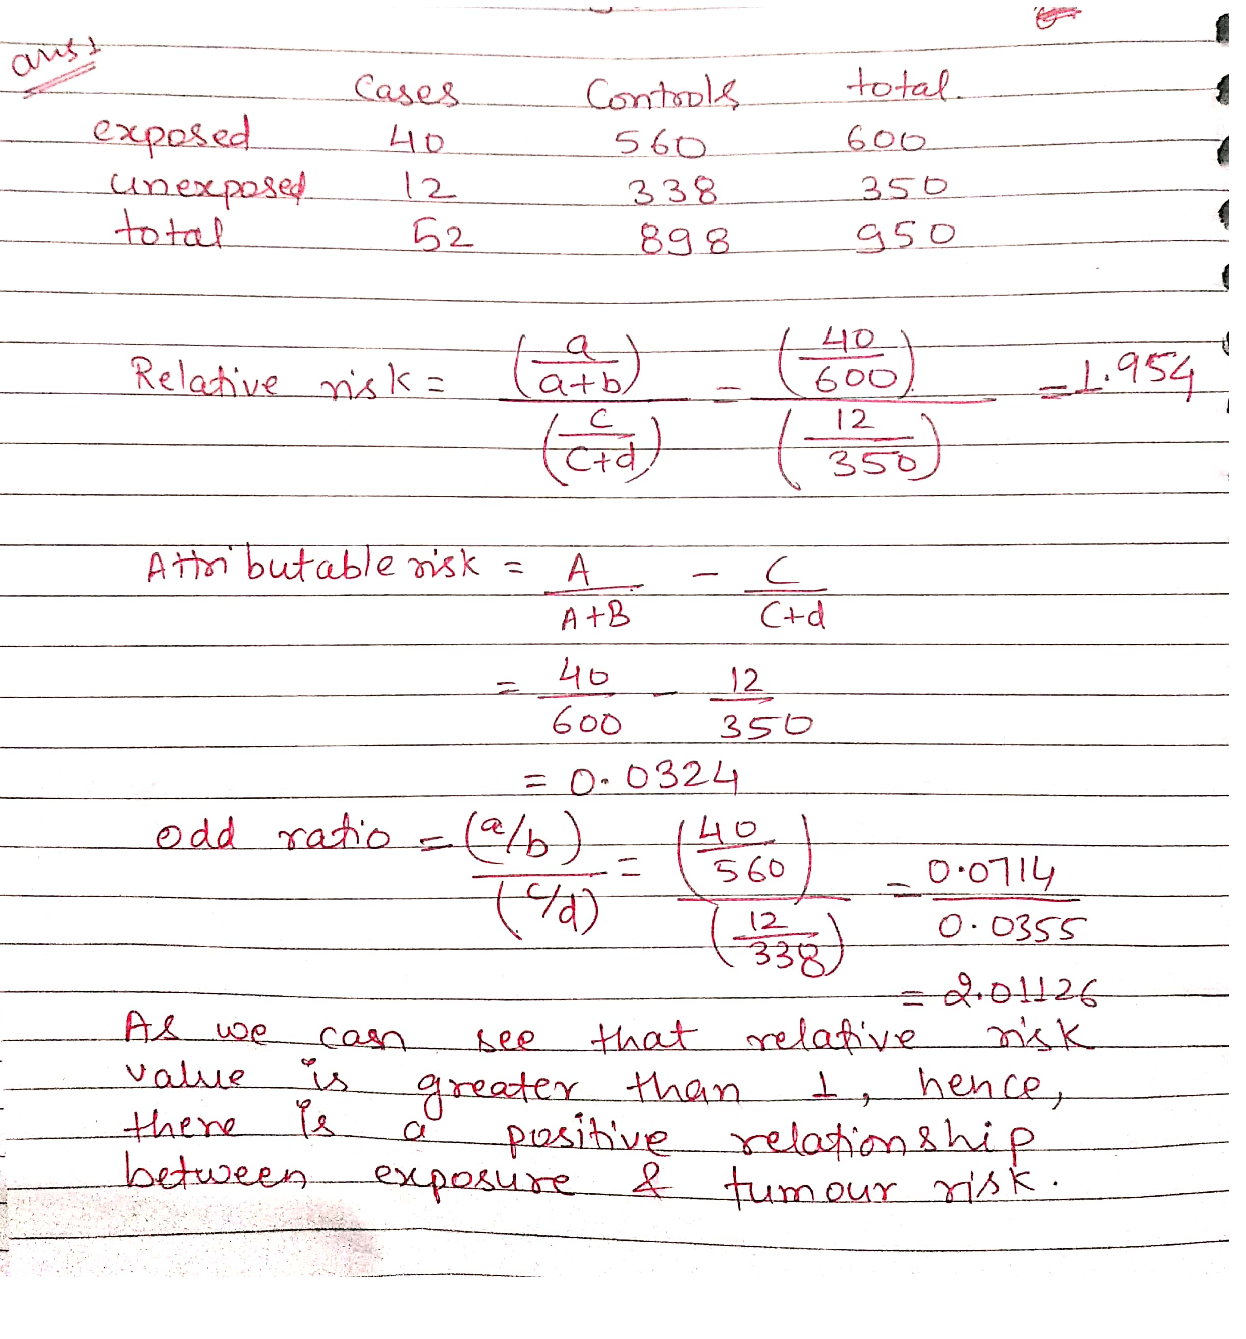 ans 1
Cases Controls total.
exposed 40 560 600
unexposed 12 338 350
total 52 898 950
Relative risk = (a/(a+b)) / (c/(c+d)) = (40/600) / (12/350) = 1.954
Attributable risk = A/(A+B) - C/(C+d)
= 40/600 - 12/350
= 0.0324
odd ratio = (a/b) / (c/d) = (40/560) / (12/338) = 0.0714 / 0.0355
= 2.01126
As we can see that relative risk
value is greater than 1, hence,
there is a positive relationship
between exposure & tumour risk.